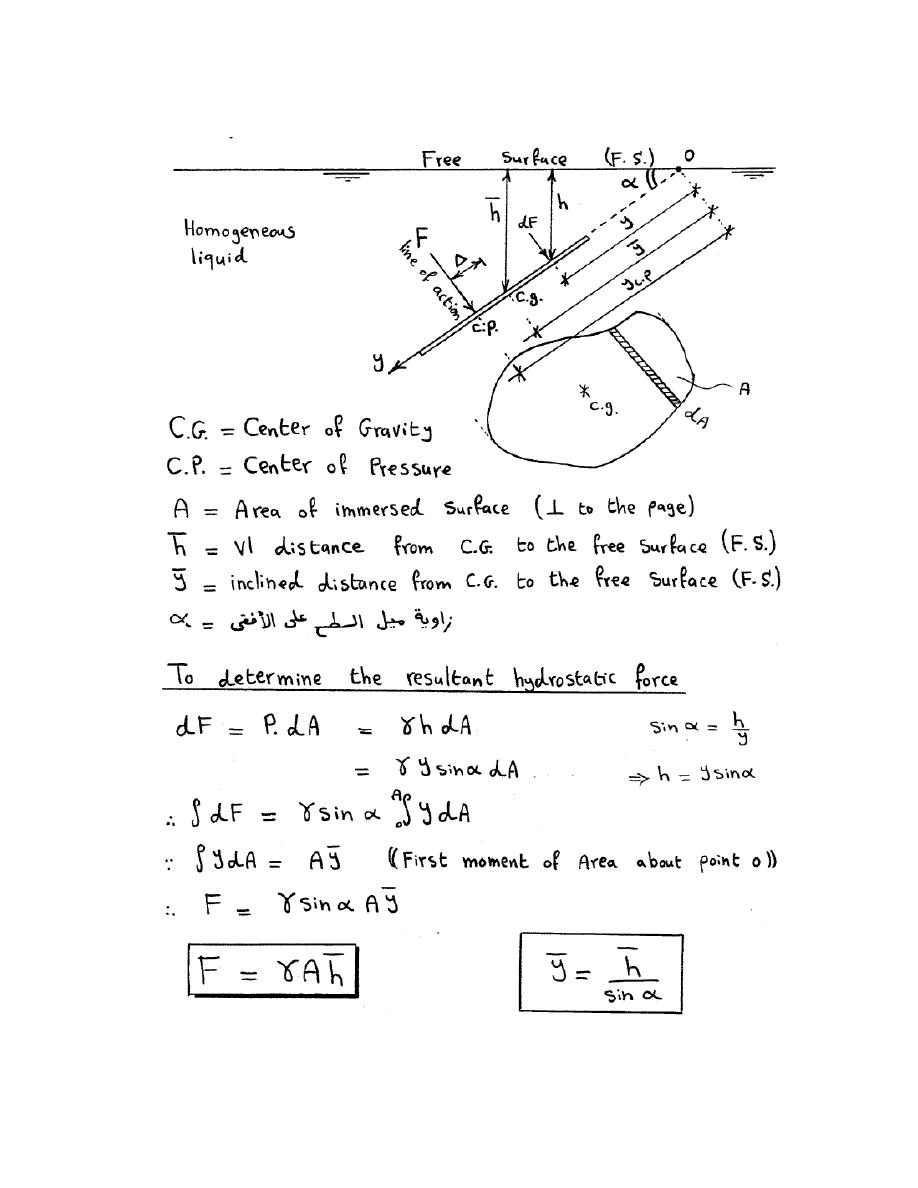 Free Surface (F. S.) O
α
h̄
h
dF
Homogeneous
liquid
F
line of action
Δ
y
ȳ
yc.p
c.g.
c.p.
y
A
c.g.
dA
C.G. = Center of Gravity
C.P. = Center of Pressure
A = Area of immersed Surface (⊥ to the page)
h̄ = Vl distance from C.G. to the free Surface (F. S.)
ȳ = inclined distance from C.G. to the free Surface (F. S.)
α = زاوية ميل السطح على الأفقى
To determine the resultant hydrostatic force
dF = P. dA = γh dA sin α = h/y
= γ y sinα dA ⇒ h = y sinα
∴ ∫ dF = γ sin α ₀∫ᴬ y dA
∵ ∫ y dA = A ȳ ((First moment of Area about point o))
∴ F = γ sin α A ȳ
F = γ A h̄ ȳ = h̄ / sin α